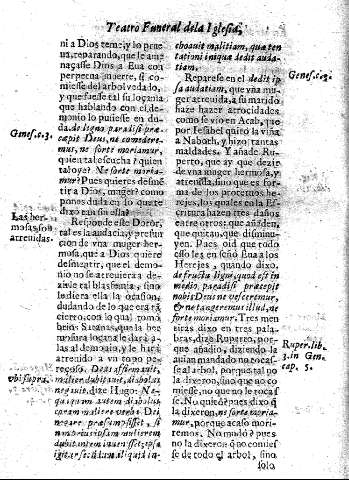 Teatro Funeral de la Iglesia,
ni a Dios teme, y lo
na, reparando, que le ame
naçasse Dios a Eua con
perpetua muerte, si co
miesse del arbol vedado,
y que fuesse tal su loçania
que hablando con el de
monio lo pusiesse en du
da, de ligno paradisi præ
cæpit Deus, ne comedere
mus, ne forte moriamur,
quien tal escucha? quien
tal oye? Ne forte moria
mur? Pues quieres desmē
tir a Dios, muger? como
pones duda en lo que te
dixo tan sin ella?
Genes. c. 3.
Responde este Doctor,
tal es la audacia, y presun
cion de vna muger her
mosa, que a Dios quiere
desmentir, que el demo
nio no se atreuiera a de
zirle tal blasfemia, sino
ludiera ella la ocasion,
dudando de lo que era tā
cierto, con lo qual
hein: Satanas, que la her
mosura loçana le dará a
las al demonio, y le hará
atreuido a vn
pe
reçoso. Deus affirmauit,
mulier dubitauit, diabolus
negauit, dize Hugo: Ne
quaquam autem diabolus
coram muliere verba Dei
negare præsumpsisset, si
non ipsam mulierem
dubitantem inuenisset; ipsa
igitur
Las her
mosas son
atreuidas.
vbi supra.
choauit malitiam, quæ ten
tationi iniquæ dedit auda
tiam.
Reparese en el dedit ip
sa audatiam, que vna mu
ger atreuida, a su marido
haze hazer atrocidades
como se vio en Acab, que
por Iesabel quitò la viña
a Naboth, y hizo tantas
maldades. Y añade Ru
perto, que ay que dezir
de vna muger hermosa, y
atreuida, sino que es for
ma de los proteruos he
rejes, los quales en la Es
critura hazen tres daños
entre otros; que añaden,
que quitan, que disminu
yen. Pues oid que todo
esso les en señò Eua a los
Herejes, quando dixo,
de fructu ligni, quod est in
medio paradisi præcepit
nobis Deus ne vesceremur,
& ne tangeremus illud, ne
forte moriamur. Tres men
tiras dizo en tres pala
bras, dize Ruperto, por
que añadio, diziendo la
auian mandado no tocas
se al arbol, porque tal no
la dixeron, sino que no co
miesse, no que no le tocas
se. No quiè? pues dixo q̄
la dixeron, ne forte moria
mur, porque acaso mori
remos. No mudò? pues
no la dixeron q̄ no comies
se de todo el arbol, sino
solo
Genes. c. 3.
Ruper. lib.
3. in Gen
cap. 5.